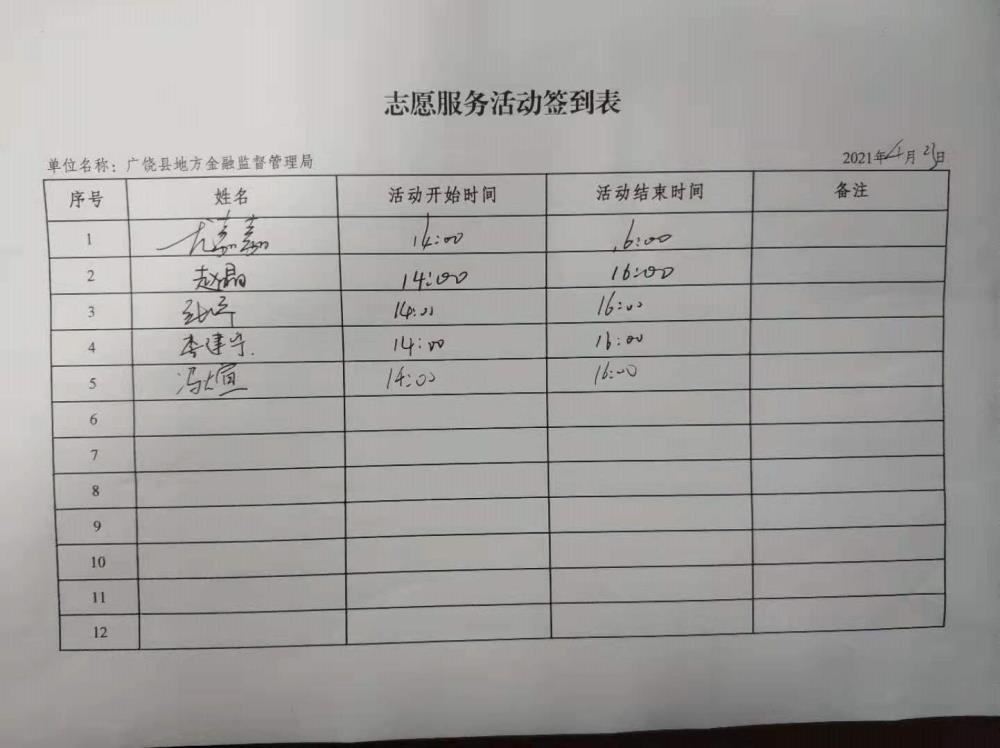 志愿服务活动签到表
单位名称：广饶县地方金融监督管理局 2021年4月23日
序号 姓名 活动开始时间 活动结束时间 备注
1 尤嘉嘉 14:00 16:00
2 赵晶 14:00 16:00
3 14:00 16:00
4 李建宁 14:00 16:00
5 冯大宣 14:00 16:00
6
7
8
9
10
11
12